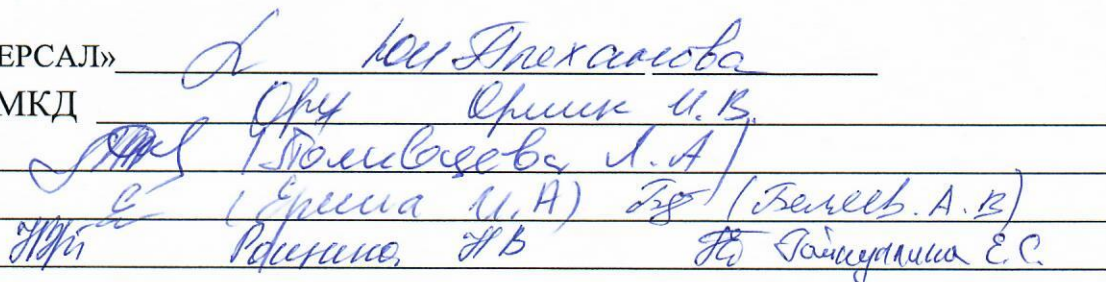 ЕРСАЛ» Юи Плеханова
МКД Орлик И.В.
(Поливцева Л.А)
(Ерина И.А) (Беляев. А.В)
Ранина НВ Гайнуллина Е.С.